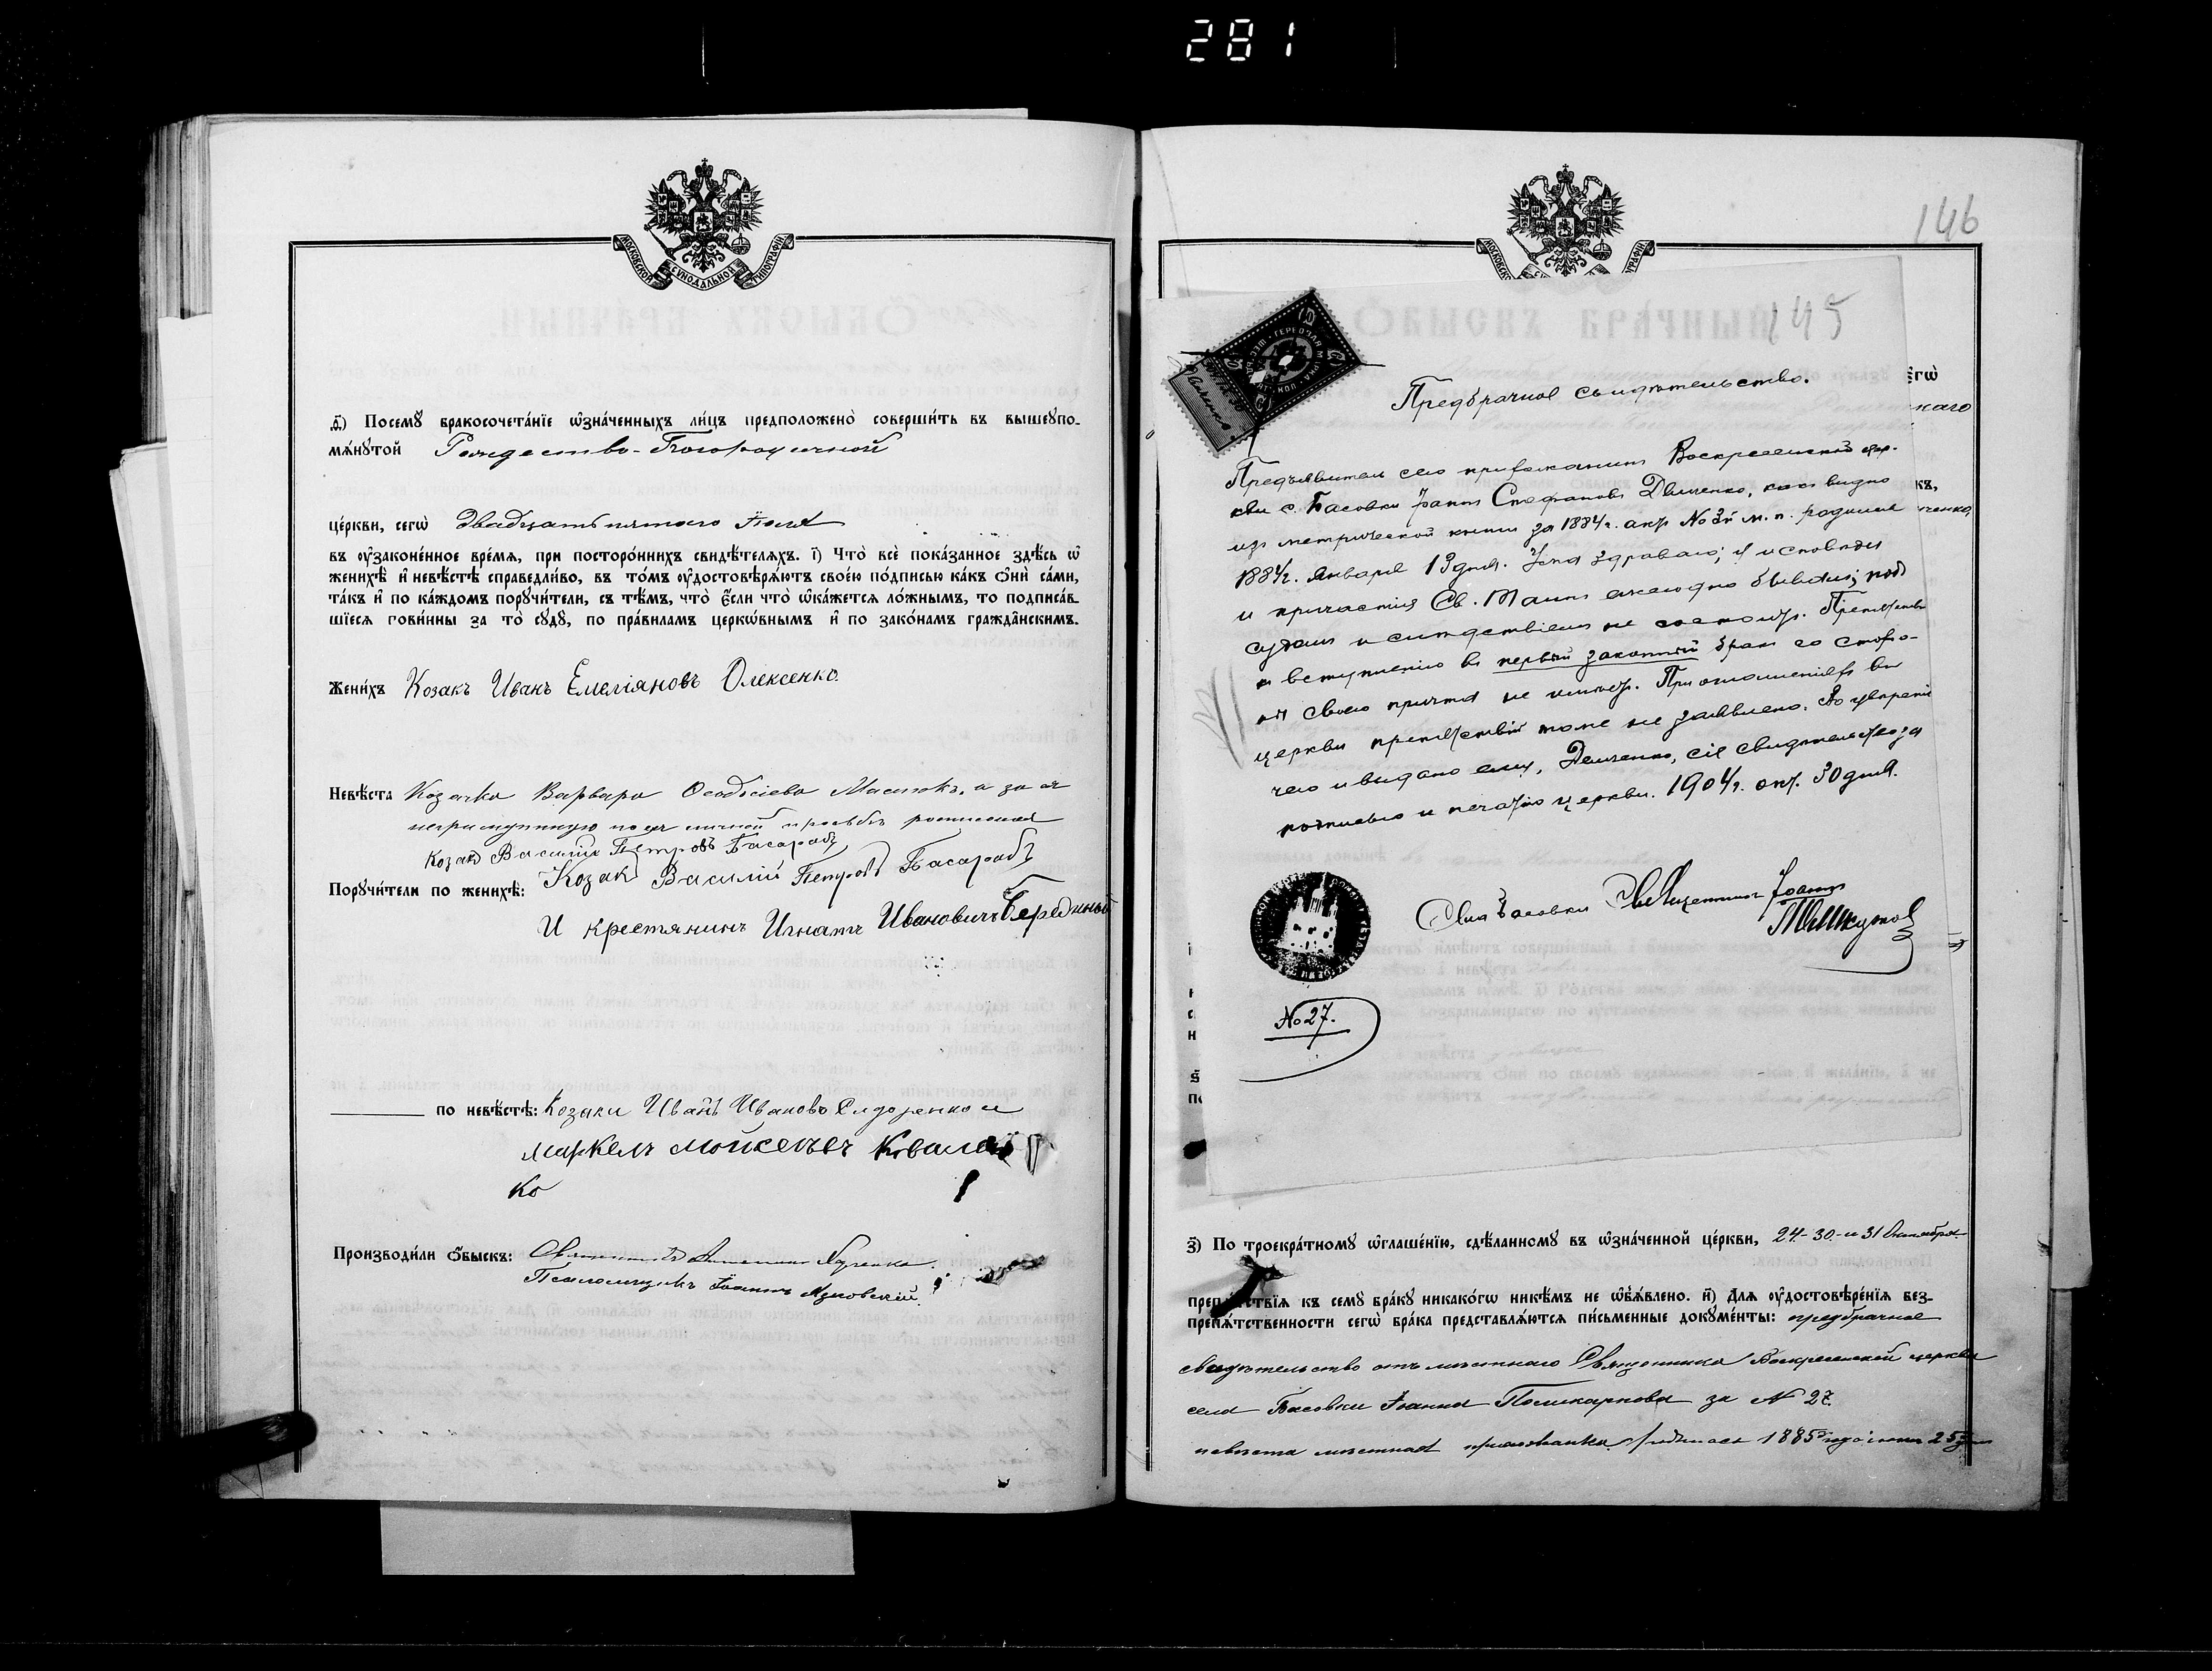 281
МОСКОВСКОЙ СѴНОДАЛЬНОЙ ТИПОГРАФІИ
д҃) Посемꙋ бракосочета́нїе ѡ҆зна́ченныхъ ли́цъ предположено̀ соверши́ть въ вышеꙋпо-
мѧ́нꙋтой Рождество-Богородичной
це́ркви, сегѡ̀ двадцать пятаго Іюля
въ ᲂу҆зако́ненное вре́мѧ, при посторо́ннихъ свидѣ́телѧхъ. і҃) Что̀ всѐ пока́занное здѣ́сь ѡ҆
женихѣ̀ и҆ невѣ́стѣ справедли́во, въ то́мъ ᲂу҆достовѣрѧ́ютъ свое́ю по́дписью ка́къ ѻ҆нѝ са́ми,
та́къ и҆ по ка́ждомъ порꙋчи́тели, съ тѣ́мъ, что̀ є҆́сли что̀ ѡ҆ка́жетсѧ ло́жнымъ, то подписа́в-
шїесѧ пови́нны за то̀ сꙋдꙋ̀, по пра́виламъ церко́внымъ и҆ по зако́намъ гражда́нскимъ.
Жени́хъ Козакъ Иванъ Емеліяновъ Олексенко.
Невѣ́ста Козачка Варвара Масюкъ, а за ея
неграмотную по ея личной просьбѣ росписался
Козакъ Василій Петровъ Басарабъ
Порꙋчи́тели по женихѣ̀: Козакъ Василій Петровъ Басарабъ
И крестянинъ Игнатъ Ивановичъ
по невѣ́стѣ: Козаки Иванъ Ивановъ Сидоренко и
маркелъ мойсеевъ Ковален
ко
Производи́ли ѻ҆́быскъ: Священникъ
Псаломщикъ Іоаннъ
146
МОСКОВСК ГРАФІИ
145
ОБЫСКЪ БРАЧНЫЙ
Предбрачное свидѣтельство.
Предъявитель сего прихожанинъ Воскресенской цер-
кви с. Басовки Іоаннъ Стефановъ Демченко, какъ видно
изъ метрической книги за 1884 г. актъ № м. п. родился
1884 г. Января 13 дня. Ума здраваго; у исповѣди
и причастія Св. Таинъ ежегодно бывалъ; подъ
судомъ и слѣдствіемъ не состоитъ. Препятствія
къ вступленію въ первый законный бракъ со сторо-
ны своего причта не имѣетъ. При оглашеніяхъ въ
церкви препятствій тоже не заявлено. Въ увѣреніе
чего и выдано ему, Демченко, сіе свидѣтельство за
подписью и печатью церкви. 1904 г. окт. 30 дня.
Села Басовки Священникъ Іоаннъ
№ 27.
з҃) По троекра́тномꙋ ѡ҆глаше́нїю, сдѣ́ланномꙋ въ ѡ҆зна́ченной це́ркви, 24.- 30.- и 31 Октября
препѧ́тствїѧ къ семꙋ бра́кꙋ никако́гѡ никѣ́мъ не ѡ҆б̾ѧ́влено. и҃) Длѧ ᲂу҆достовѣре́нїѧ без-
препѧ́тственности сегѡ̀ бра́ка представлѧ́ютсѧ пи́сьменные докꙋме́нты: предбрачное
свидѣтельство отъ мѣстнаго Священника Воскресенской церкви
села Басовки Іоанна Поликарпова за № 27.
невѣста мѣстная прихожанка родилась 1885 года 25 дня